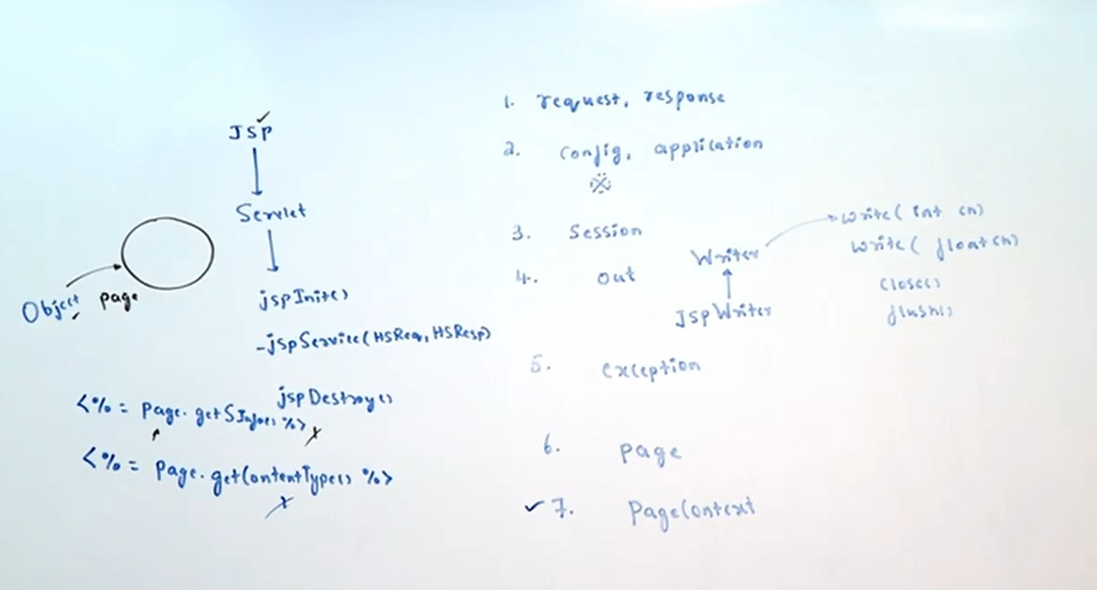 JSP
Servlet
Object page
jspInit()
-jspService(HSReq, HSResp)
jspDestroy()
<%= page.getSInfo() %>
<%= page.getContentType() %>
1. request, response
2. config, application
3. Session
4. out
Writer
JSPWriter
write( int ch)
write( float ch)
close()
flush()
5. exception
6. page
7. pageContext